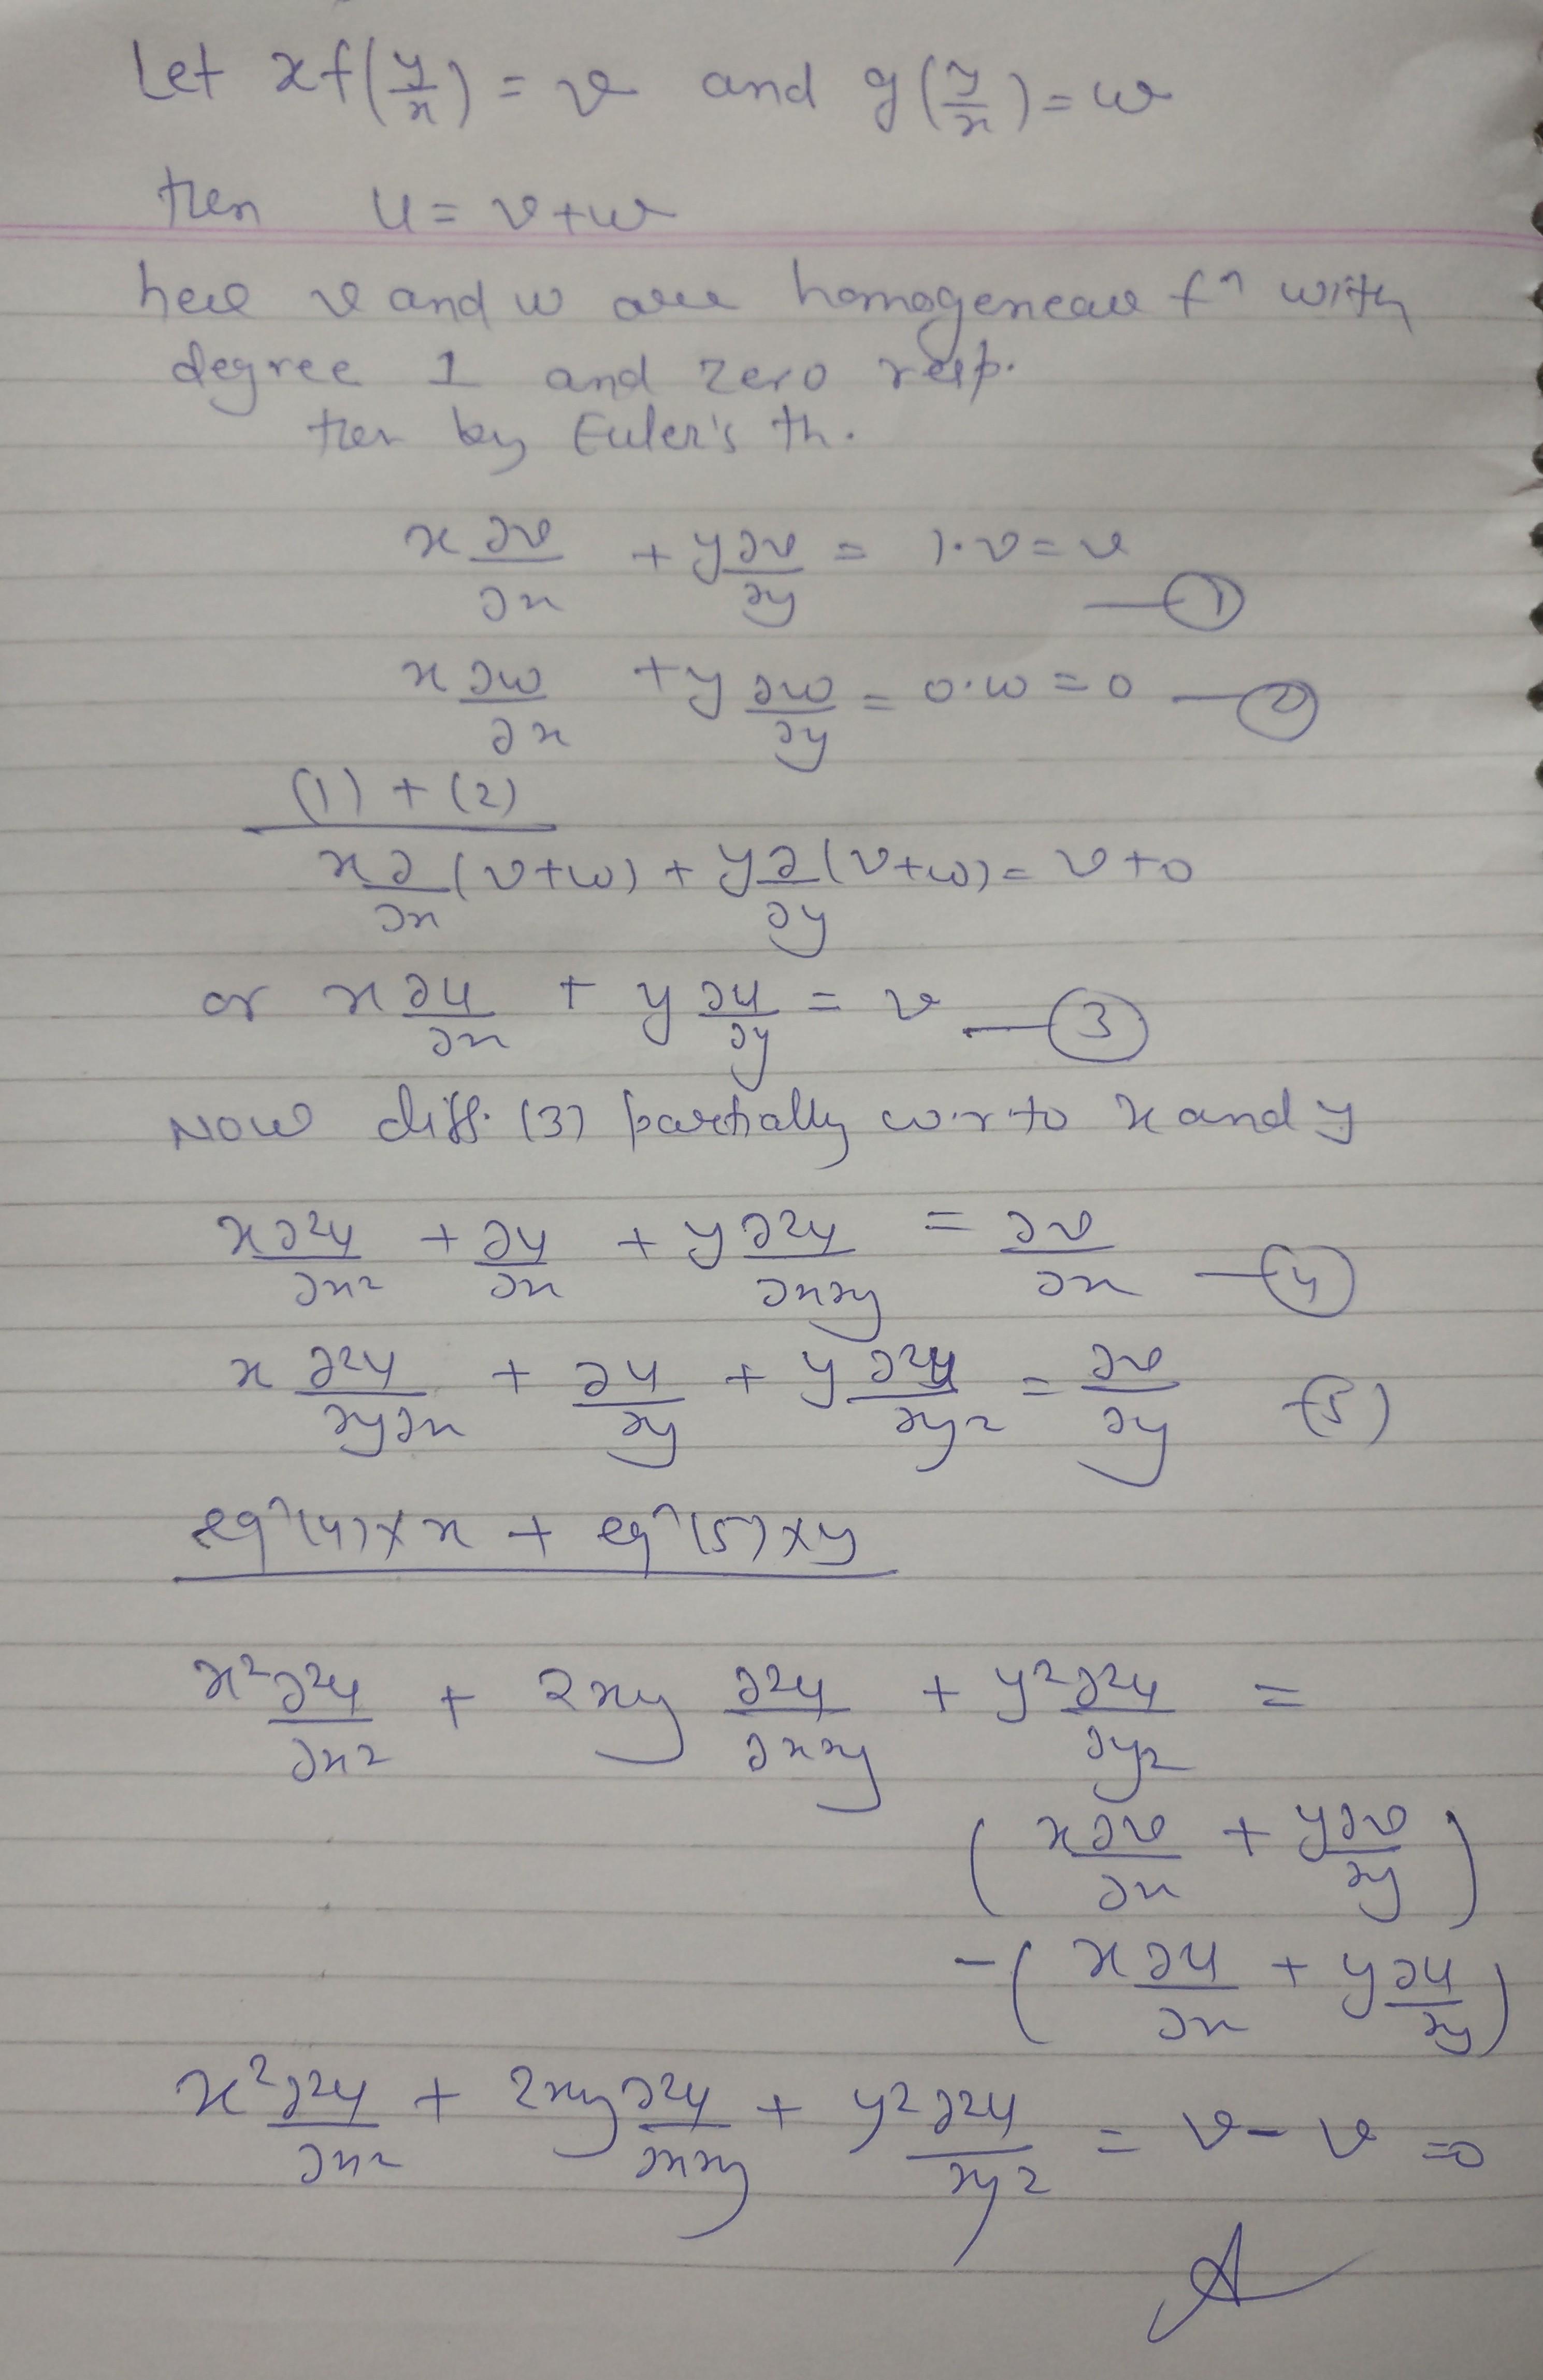 Let xf(y/x) = v and g(y/x) = w
then u = v+w
here v and w are homogeneous fn with
degree 1 and zero resp.
then by Euler's th.
x ∂v/∂x + y ∂v/∂y = 1·v = v —①
x ∂w/∂x + y ∂w/∂y = 0·w = 0 —②
(1) + (2)
x ∂/∂x (v+w) + y ∂/∂y (v+w) = v+0
or x ∂u/∂x + y ∂u/∂y = v —③
Now diff. (3) partially w.r.to x and y
x ∂²u/∂x² + ∂u/∂x + y ∂²u/∂x∂y = ∂v/∂x —④
x ∂²u/∂y∂x + ∂u/∂y + y ∂²u/∂y² = ∂v/∂y —(5)
eqn(4)×x + eqn(5)×y
x² ∂²u/∂x² + 2xy ∂²u/∂x∂y + y² ∂²u/∂y² =
(x ∂v/∂x + y ∂v/∂y)
-(x ∂u/∂x + y ∂u/∂y)
x² ∂²u/∂x² + 2xy ∂²u/∂x∂y + y² ∂²u/∂y² = v - v = 0